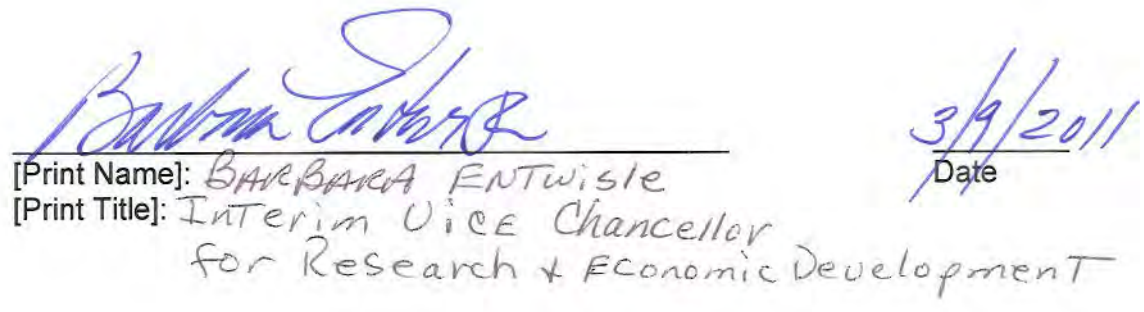 Barbara Entwisle 3/9/2011
Date
[Print Name]: BARBARA ENTWISle
[Print Title]: Interim Vice Chancellor
for Research & Economic Development